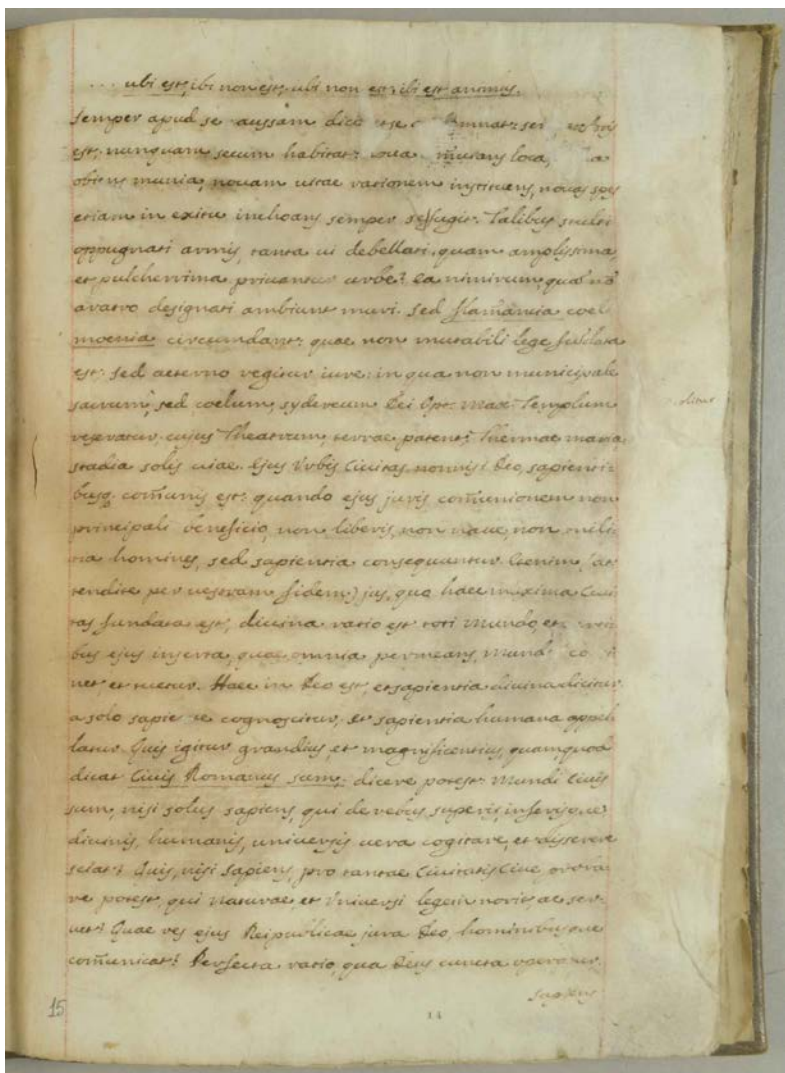 ... ubi est, ibi non est, ubi non est ibi est animus.
semper apud se
est, nunquam secum habitat: mutans loca,
obiens munia, novam vitae rationem instituens, novas spes
etiam in exitu inchoans semper se fugit. Talibus stulti
oppugnati armis, tanta vi debellati, quam amplissima,
et pulcherrima privantur urbe? ea nimirum, qua nõ
aratro designati ambiunt muri. sed flamantia coeli
moenia circumdant: quae non mutabili lege fundata
est: sed aeterno regitur iure: in qua non municipale
sacrum, sed coelum, sydereum Dei Opt. Max. Templum
reseratur. cujus Theatrum, terrae patent: Thermae maria,
stadia solis viae. Ejus Urbis Civitas nonnisi Deo, sapienti-
busq. com̃unis est: quando ejus juris com̃unionem non
principali beneficio, non liberis, non nave, non mili
tia homines, sed sapientia consequantur. Etenim (at
tendite per vestram fidem) jus, quo haec maxima Civi
tas fundata est, divina ratio est toti Mundo, et
bus ejus inserta, quae omnia permeans, Mund
net et tuetur. Haec in Deo est, et sapientia divina dicitur
a solo sapie te cognoscitur, et sapientia humana appel
latur. Quis igitur grandius, et magnificentius, quam quod
dicat Civis Romanus sum, dicere potest: Mundi Civis
sum, nisi solus sapiens, qui de rebus superis, inferisque
divinis, humanis, universis vera cogitare, et disserere
sciat? Quis, nisi sapiens, pro tantae Civitatis Cive,
re potest, qui naturae, et Universi legem norit, ac ser-
vet? Quae res ejus Reipublicae jura Deo, hominibusque
com̃unicat? Perfecta ratio, qua Deus cuncta operatur,
sapiens
15
14